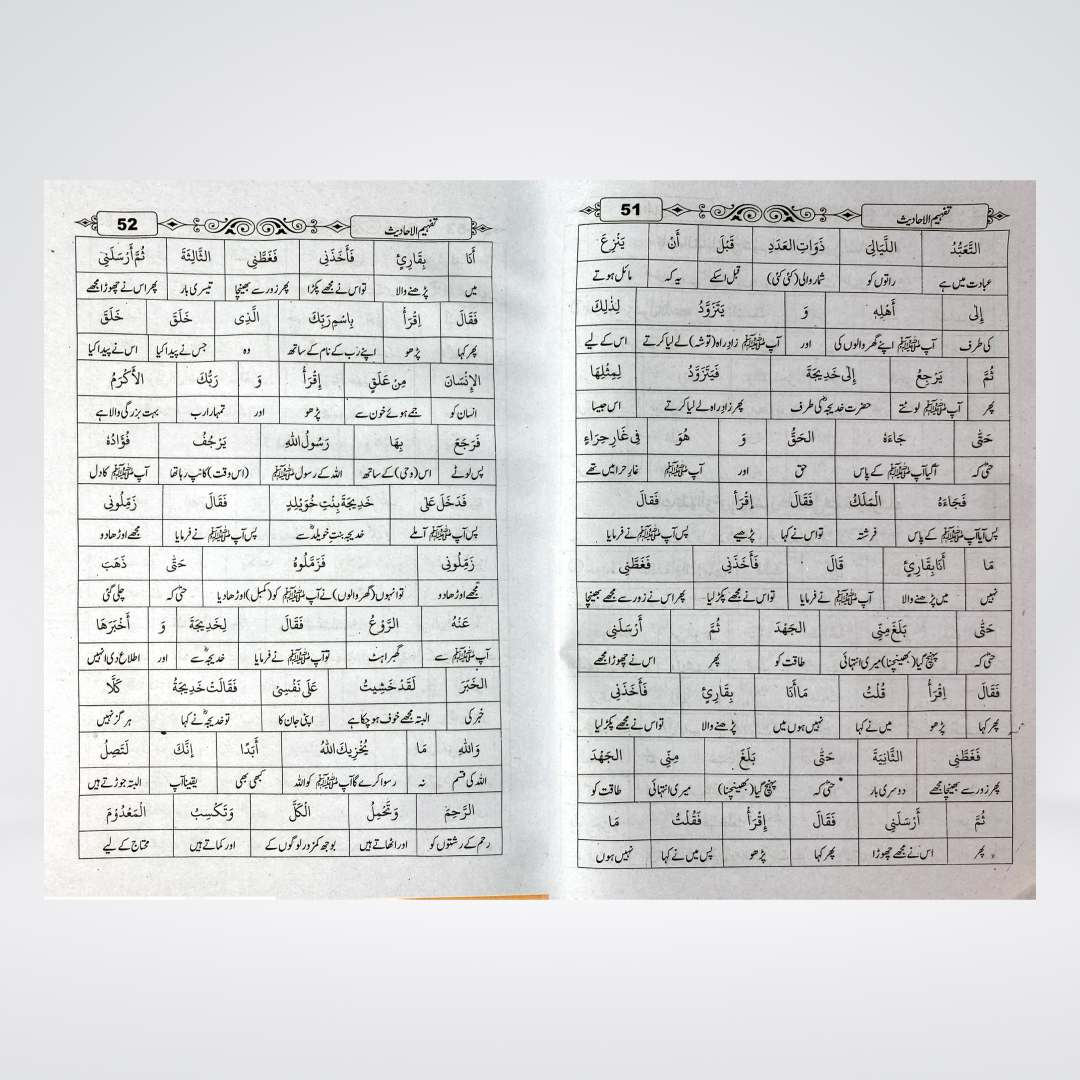 تفہیم الاحادیث 51
التَّعَبُّدُ اللَّيَالِيَ ذَوَاتِ العَدَدِ قَبْلَ أَنْ يَنْزِعَ
عبادت میں ہے راتوں کو شمار والی (کئی کئی) قبل اسکے یہ کہ مائل ہوتے
إِلَى أَهْلِهٖ وَ يَتَزَوَّدُ لِذٰلِكَ
کی طرف آپ ﷺ اپنے گھر والوں کی اور آپ ﷺ زادِ راہ (توشہ) لے لیا کرتے اس کے لیے
ثُمَّ يَرْجِعُ إِلٰى خَدِيْجَةَ فَيَتَزَوَّدُ لِمِثْلِهَا
پھر آپ ﷺ لوٹتے حضرت خدیجہؓ کی طرف پھر زادِ راہ لے لیا کرتے اس جیسا
حَتّٰى جَاءَهُ الحَقُّ وَ هُوَ فِى غَارِ حِرَاءٍ
حتیٰ کہ آگیا آپ ﷺ کے پاس حق اور آپ ﷺ غارِ حرا میں تھے
فَجَاءَهُ الْمَلَكُ فَقَالَ إِقْرَأْ فَقالَ
پس آیا آپ ﷺ کے پاس فرشتہ تو اس نے کہا پڑھیے پس آپ ﷺ نے فرمایا
مَا أَنَا بِقَارِئٍ قَالَ فَأَخَذَنِى فَغَطَّنِى
نہیں میں پڑھنے والا آپ ﷺ نے فرمایا تو اس نے مجھے پکڑ لیا پھر اس نے زور سے مجھے بھینچا
حَتّٰى بَلَغَ مِنِّى الجَهْدَ ثُمَّ أَرْسَلَنِى
حتیٰ کہ پہنچ گیا (بھینچنا) میری انتہائی طاقت کو پھر اس نے چھوڑا مجھے
فَقَالَ اِقْرَأْ قُلْتُ مَا أَنَا بِقَارِئٍ فَأَخَذَنِى
پھر کہا پڑھو میں نے کہا نہیں ہوں میں پڑھنے والا تو اس نے مجھے پکڑ لیا
فَغَطَّنِى الثَّانِيَةَ حَتّٰى بَلَغَ مِنِّى الجَهْدَ
پھر زور سے بھینچا مجھے دوسری بار حتیٰ کہ پہنچ گیا (بھینچنا) میری انتہائی طاقت کو
ثُمَّ أَرْسَلَنِى فَقَالَ إِقْرَأْ فَقُلْتُ مَا
پھر اس نے مجھے چھوڑا پھر کہا پڑھو پس میں نے کہا نہیں ہوں
تفہیم الاحادیث 52
أَنَا بِقَارِئٍ فَأَخَذَنِى فَغَطَّنِى الثَّالِثَةَ ثُمَّ أَرْسَلَنِى
میں پڑھنے والا تو اس نے مجھے پکڑا پھر زور سے بھینچا تیسری بار پھر اس نے چھوڑا مجھے
فَقَالَ اِقْرَأْ بِاسْمِ رَبِّكَ الَّذِى خَلَقَ خَلَقَ
پھر کہا پڑھو اپنے رب کے نام کے ساتھ وہ جس نے پیدا کیا اس نے پیدا کیا
الإِنْسَانَ مِنْ عَلَقٍ إِقْرَأْ وَ رَبُّكَ الأَكْرَمُ
انسان کو جمے ہوئے خون سے پڑھو اور تمہارا رب بہت بزرگی والا ہے
فَرَجَعَ بِهَا رَسُولُ اللهِ يَرْجُفُ فُؤَادُهُ
پس لوٹے اس (وحی) کے ساتھ اللہ کے رسول ﷺ (اس وقت) کانپ رہا تھا آپ ﷺ کا دل
فَدَخَلَ عَلٰى خَدِيْجَةَ بِنْتِ خُوَيْلِدٍ فَقَالَ زَمِّلُونِى
پس آپ ﷺ آ ملے خدیجہ بنتِ خویلدؓ سے پس آپ ﷺ نے فرمایا مجھے اوڑھا دو
زَمِّلُونِى فَزَمَّلُوهُ حَتّٰى ذَهَبَ
مجھے اوڑھا دو تو انہوں (گھر والوں) نے آپ ﷺ کو (کمبل) اوڑھا دیا حتیٰ کہ چلی گئی
عَنْهُ الرَّوْعُ فَقَالَ لِخَدِيْجَةَ وَ أَخْبَرَهَا
آپ ﷺ سے گھبراہٹ تو آپ ﷺ نے فرمایا خدیجہؓ سے اور اطلاع دی انہیں
الخَبَرَ لَقَدْ خَشِيْتُ عَلٰى نَفْسِىْ فَقَالَتْ خَدِيْجَةُ كَلَّا
خبر کی البتہ مجھے خوف ہو چکا ہے اپنی جان کا تو خدیجہؓ نے کہا ہر گز نہیں
وَاللهِ مَا يُخْزِيكَ اللهُ أَبَدًا إِنَّكَ لَتَصِلُ
اللہ کی قسم نہ رسوا کرے گا آپ ﷺ کو اللہ کبھی بھی یقیناً آپ البتہ جوڑتے ہیں
الرَّحِمَ وَتَحْمِلُ الْكَلَّ وَتَكْسِبُ الْمَعْدُوْمَ
رحم کے رشتوں کو اور اٹھاتے ہیں بوجھ کمزور لوگوں کے اور کماتے ہیں محتاج کے لیے